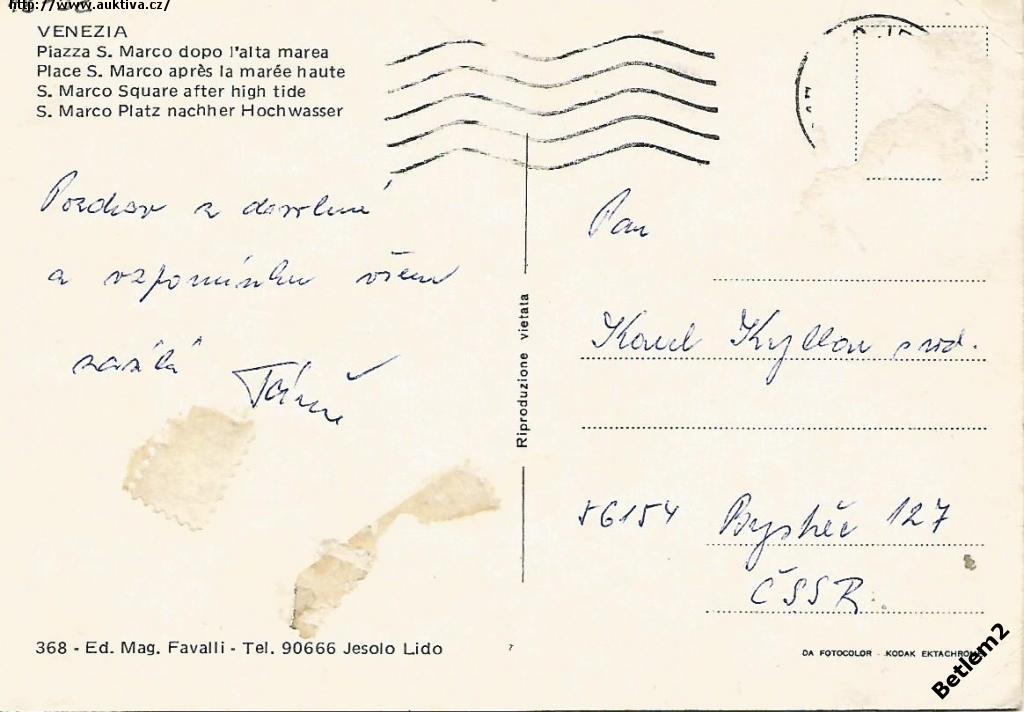 http://www.auktiva.cz/
VENEZIA
Piazza S. Marco dopo l'alta marea
Place S. Marco après la marée haute
S. Marco Square after high tide
S. Marco Platz nachher Hochwasser
Pozdrav z dovolené
a vzpomínku všem
zasílá
Pan
Karel
56154 Bystřec 127
ČSSR
Riproduzione vietata
368 - Ed. Mag. Favalli - Tel. 90666 Jesolo Lido
DA FOTOCOLOR - KODAK EKTACHROME
Betlem2